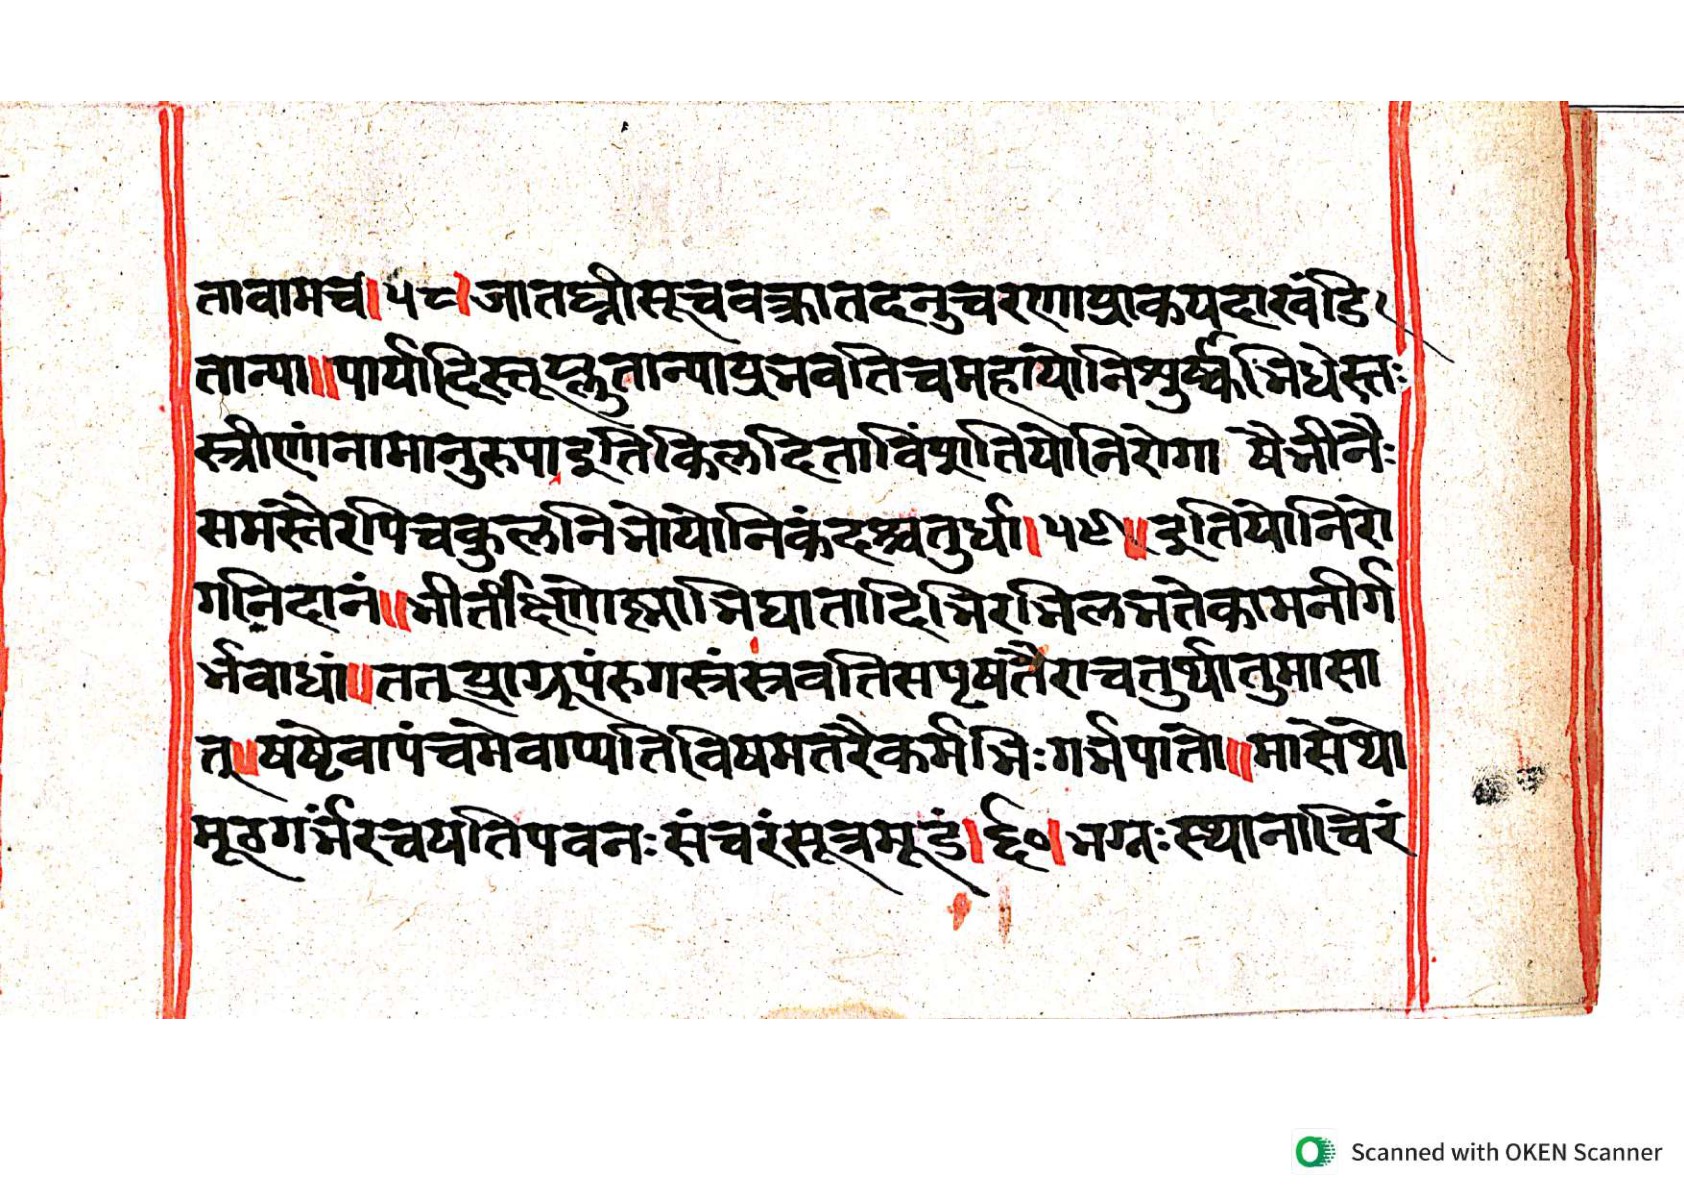 तावामच।५८।जातघ्नीसूचवक्त्रातदनुचरणाप्राकयदाखंडि
तान्या॥पार्यादिस्तूप्लुतान्याप्रभवतिचमहायोनि
स्त्रीणांनामानुरुपाइतिकिलदिताविंशतियोनिरोगा यैभीनैः
समस्तैरपिचकुलनिभोयोनिकंदश्चतुर्धा।५९॥इतियोनिरो
गनिदानं॥भीतीक्षिणोष्माभिघातादिभिरभिलभतेकामनीर्ग
र्भवाधां॥ततप्राग्रूपंरुगस्त्रंस्त्रवतिसपृषतैराचतुर्थातुमासा
त्॥षष्टेवापंचमेवाप्यतिविषमतरैकर्मभिःगर्भपातो॥मासेथो
मूठगर्भंरचयतिपवनःसंचरंसूत्रमूडं।६०।भग्नःस्थानाचिरं
Scanned with OKEN Scanner